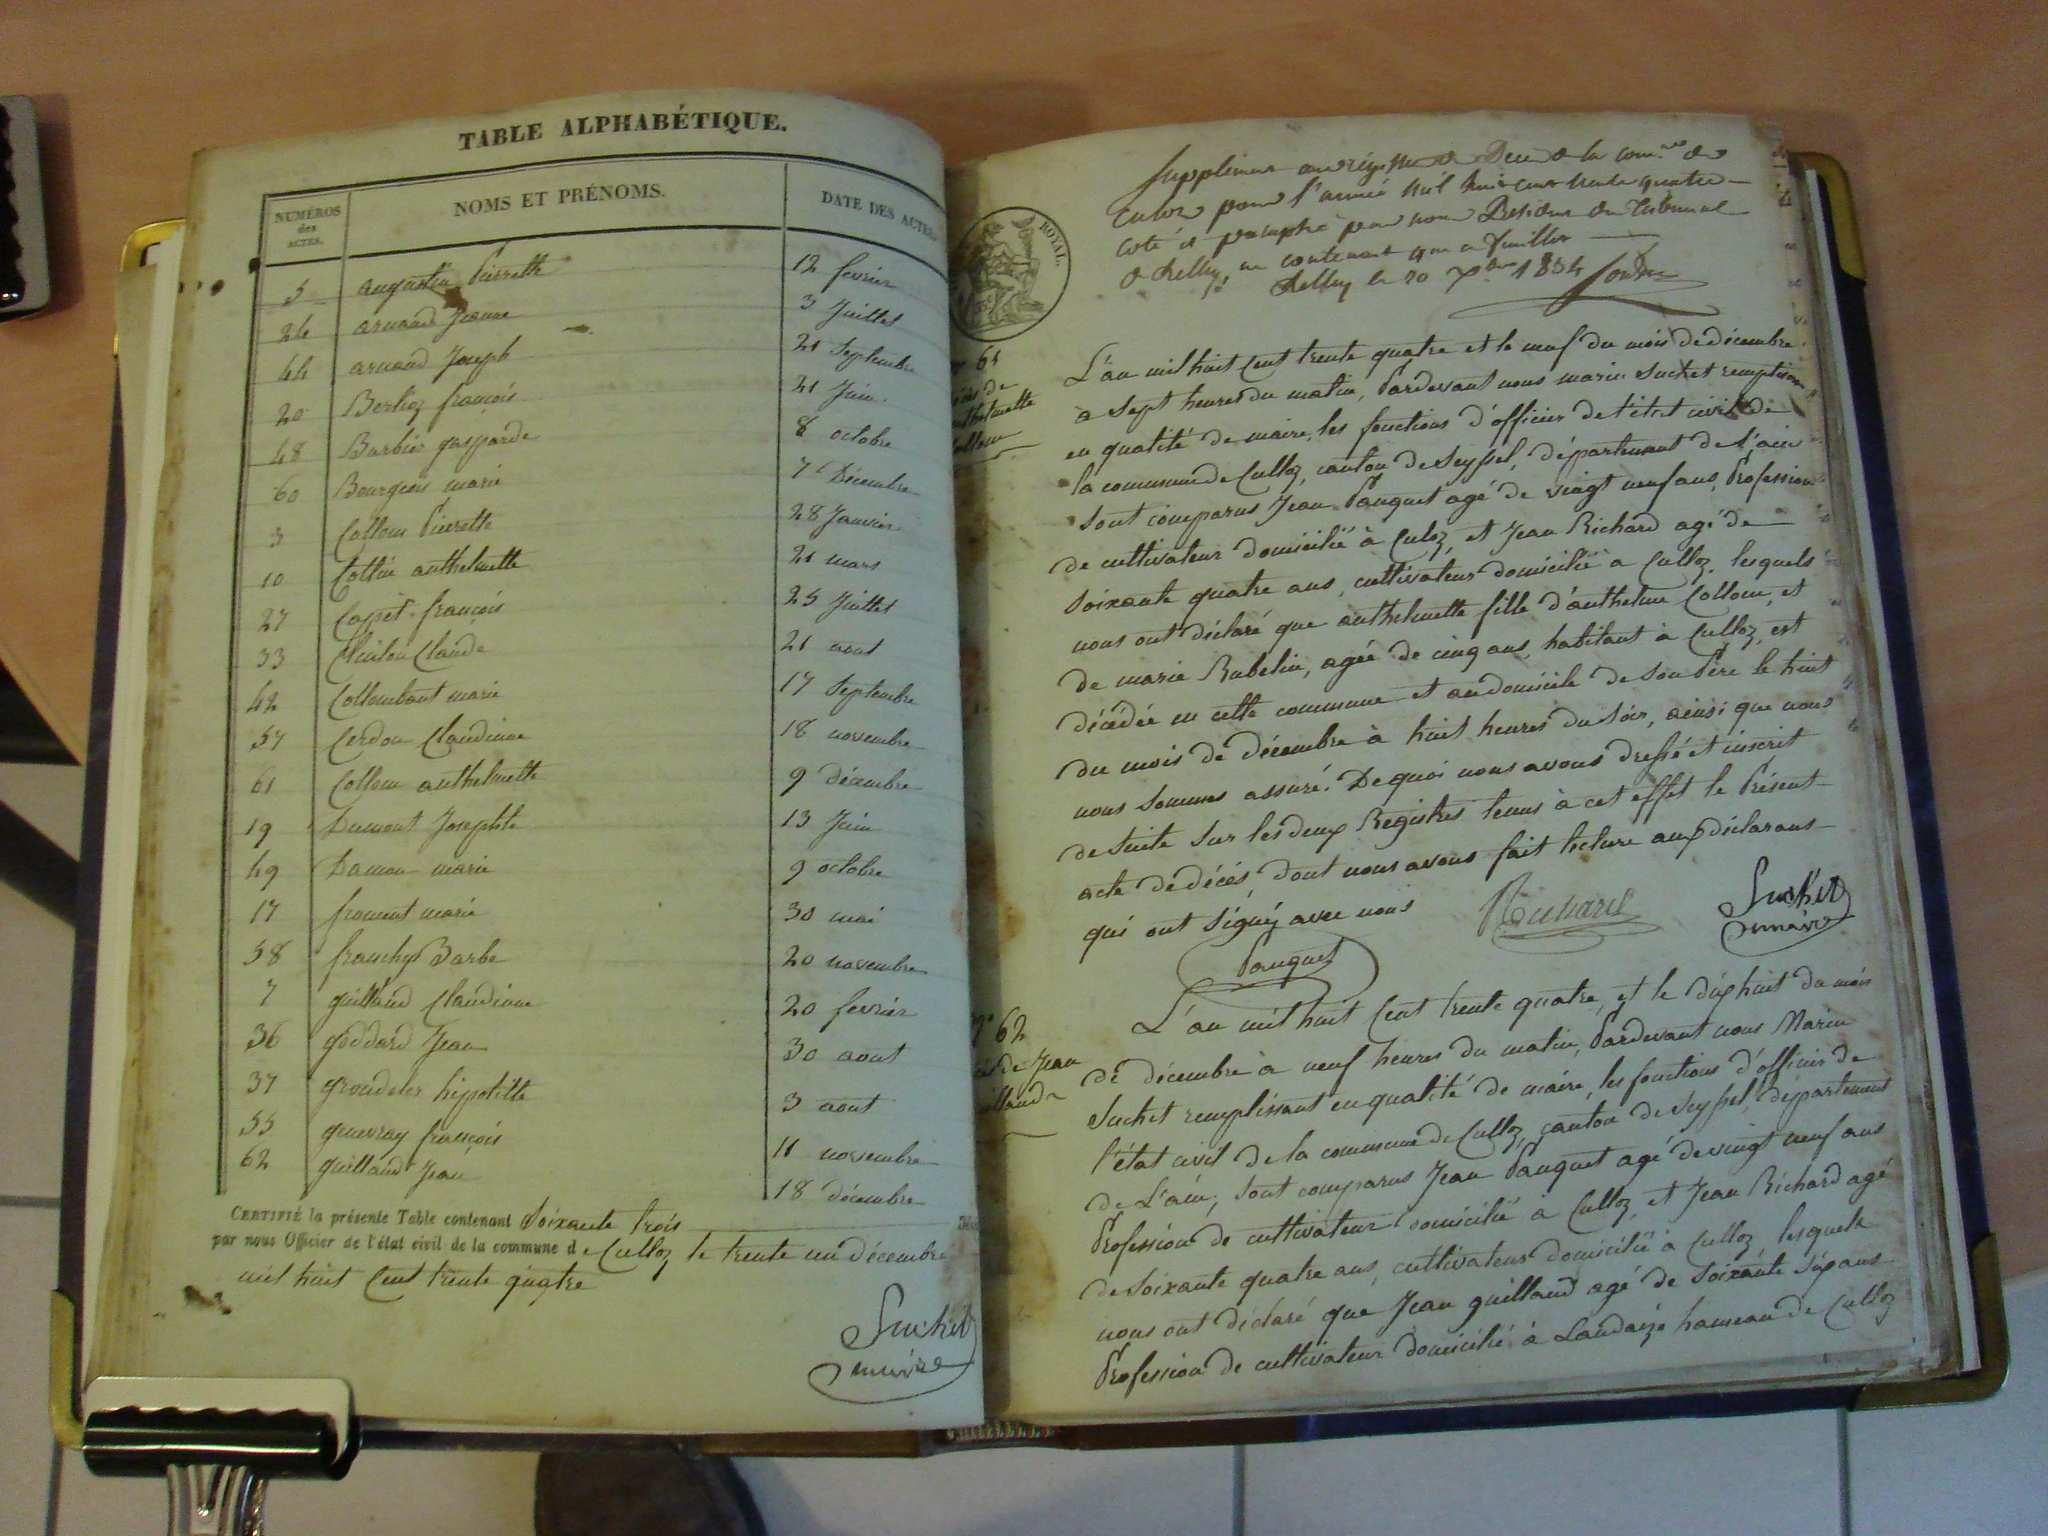 TABLE ALPHABÉTIQUE.
NUMÉROS des ACTES. NOMS ET PRÉNOMS. DATE DES ACTES.
5 augustin Pierrette 12 fevrier
26 arnaud Jeanne 3 Juillet
44 arnaud Joseph 21 Septembre
20 Berlioz françois 21 Juin.
48 Barbier gasparde 8 octobre
60 Bourgeois marie 7 Décembre
3 Collom Pierrette 28 Janvier
10 Cottin anthelmette 21 mars
27 françois 25 Juillet
33 Claude 21 aout
42 Collombant marie 17 Septembre
57 Cerdon Claudine 18 novembre
61 Collom anthelmette 9 décembre
19 Dumont Josephte 13 Juin
49 Damon marie 9 octobre
17 froment marie 30 mai
58 franchy Barbe 20 novembre
7 guilland Claudine 20 fevrier
36 goddard Jean 30 aout
37 hipolitte 3 aout
55 françois 11 novembre
62 guilland Jean 18 décembre
CERTIFIÉ la présente Table contenant Soixante trois
par nous Officier de l'état civil de la commune de Culloz le trente un décembre
mil huit Cent trente quatre
Suchet
maire
ROYAL.
Supplement au régistre de Décès de la comne de
Culoz pour l'année mil huit cent trente quatre
coté et paraphé par nous Président du Tribunal
de Belley, contenant feuillet
Belley le 20 Xbre 1834
61
L'an mil huit Cent trente quatre et le neuf du mois de décembre
a Sept heures du matin, Pardevant nous marin Suchet remplissant
en qualité de maire, les fonctions d'officier de l'état civil de
la commune de Culloz, canton de Seyssel, département de l'ain
Sont comparus Jean Pauguet agé de vingt neuf ans, Profession
de cultivateur domicilié à Culoz, et Jean Richard agé de
Soixante quatre ans, cultivateur domicilié a Culloz, lesquels
nous ont déclaré que anthelmette fille d'anthelme Collom, et
de marie Rubelin, agée de cinq ans, habitant à Culloz, est
décédée en cette commune et au domicile de Son Père le huit
du mois de décembre à huit heures du Soir, ainsi que nous
nous Sommes assuré. De quoi nous avons dressé et inscrit
de Suite Sur les deux Registres tenus à cet effet le Présent
acte de décès, dont nous avons fait lecture aux déclarans
qui ont Signé avec nous
Richard
Suchet
maire
Pauguet
N° 62
de Jean
L'an mil huit Cent trente quatre, et le dix huit du mois
de décembre à neuf heures du matin, Pardevant nous Marin
Suchet remplissant en qualité de maire, les fonctions d'officier de
l'état civil de la commune de Culloz, canton de Seyssel, département
de L'ain, Sont comparus Jean Pauguet agé de vingt neuf ans
Profession de cultivateur domicilié a Culloz, et Jean Richard agé
de Soixante quatre ans, cultivateur domicilié à Culloz lesquels
nous ont déclaré que Jean guilland agé de Soixante Six ans
Profession de cultivateur domicilié à Landaize hameau de Culloz